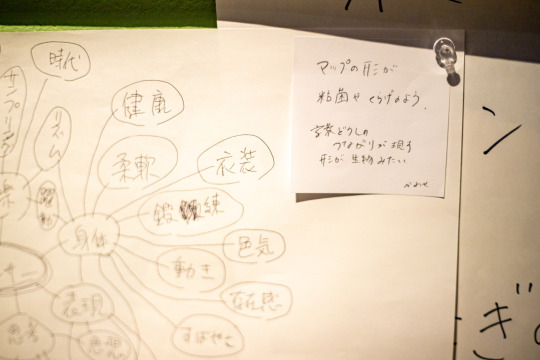 時代
サンプリング
リズム
健康
柔軟
衣装
鍛練
身体
色気
動き
存在感
すばやさ
表現
思考
マップの形が
粘菌や くらげのよう。
言葉どうしの
つながりが現す
形が生物みたい
ン
ぎ